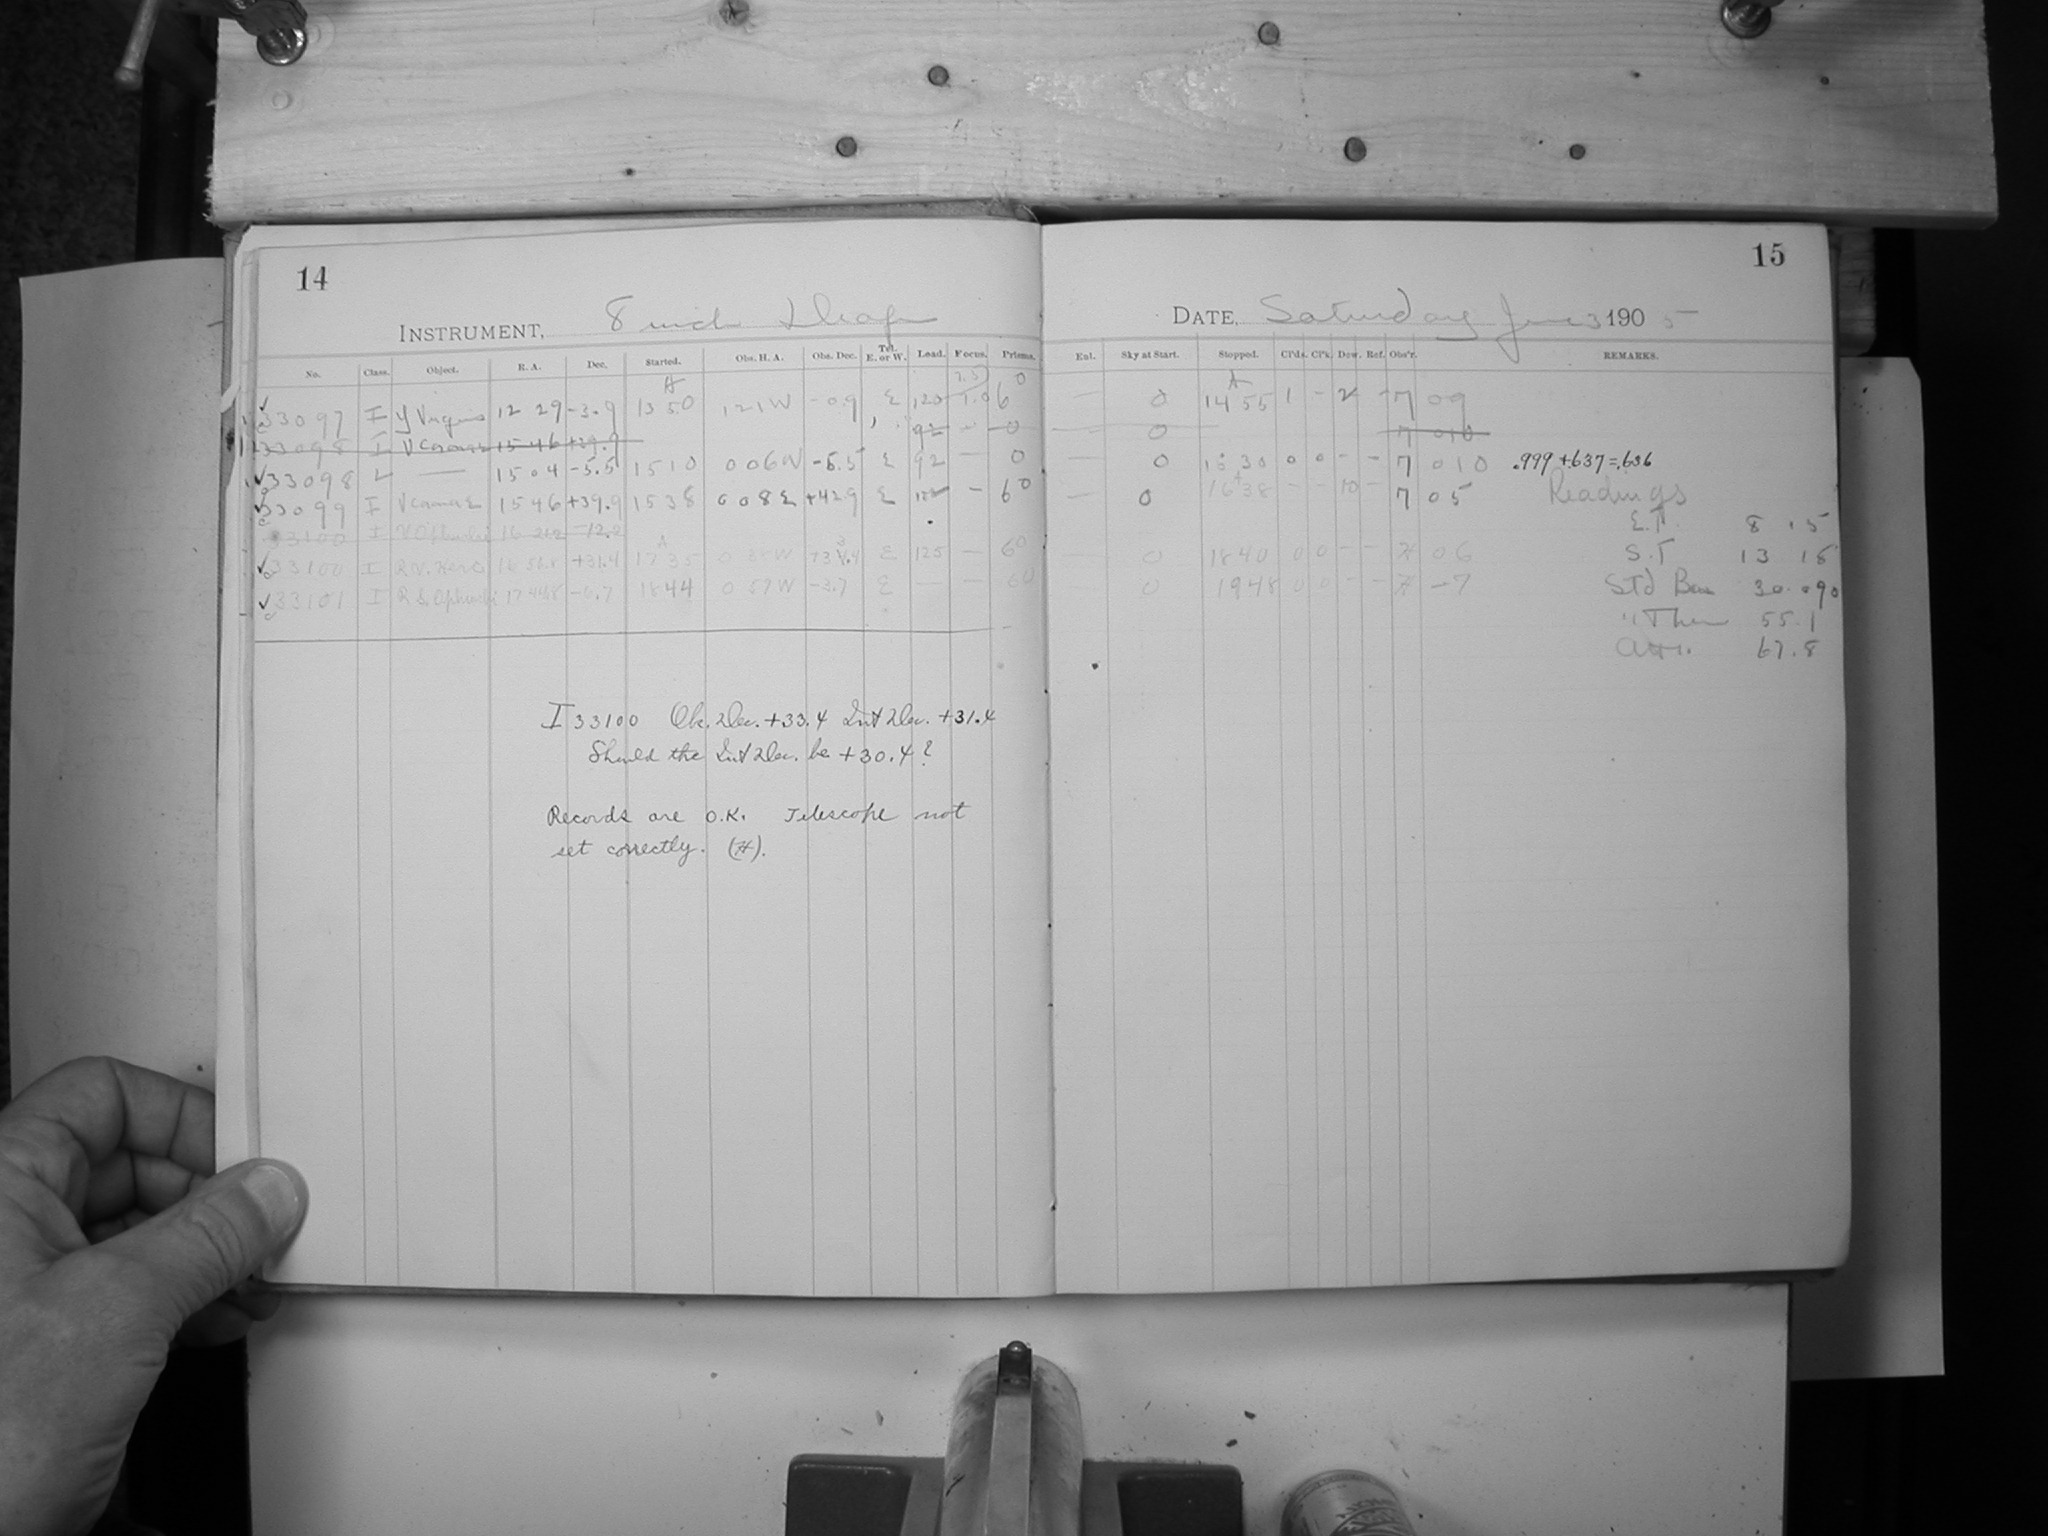 14
15
INSTRUMENT, 8 inch Draper
DATE, Saturday June 3 1905
No. Class. Object. R. A. Dec. Started. Obs. H. A. Obs. Dec. Tel. E. or W. Lead. Focus. Prisms. Ext. Sky at Start. Stopped. Cl'ds. Cl'k. Dew. Ref. Obs'r. REMARKS.
33097 I Y Virginis 12 29 -3.9 13 50 1 21 W -0.9 E 120 1.0 6° — 0 14 55 1 - 2 - 7 09
33098 I V Coronae 15 46 +39.9 92 - 0 — 0 7 010
33098 L — 15 04 -5.5 15 10 0 06 W -5.5 E 92 — 0 0 15 30 0 0 - - 7 010 .999 + .637 = .636
33099 I V Coronae 15 46 +39.9 15 38 0 08 E +42.9 E 122 - 6° — 0 16 38 - - 10 - 7 05 Readings
33100 I V Ophiuchi 16 21.2 -12.2 E.T. 8 15
33100 I RV. Herc 16 56.8 +31.4 17 35 0 38 W +33.4 E 125 — 6° — 0 18 40 0 0 - - H 06 S.T 13 15
33101 I R S. Ophiuchi 17 44.8 -6.7 18 44 0 57 W -3.7 E — — 6° 0 19 48 0 0 - - H -7 Std Bar 30.090
" Ther 55.1
Att. 67.8
I 33100 Obs. Dec. +33.4 Int Dec. +31.4
Should the Int Dec. be +30.4?
Records are O.K. Telescope not
set correctly. (H).